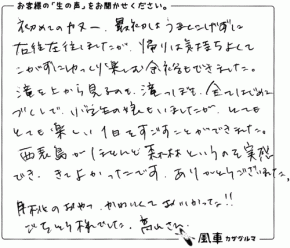 お客様の「生の声」をお聞かせください。
初めてのカヌー、最初はうまくこげずに
右往左往しましたが、帰りは気持ちよくて
こがずにゆっくり楽しむ余裕もできました。
滝を上から見るのも、滝つぼも、全てはじめて
づくしで、小学生の娘といましたが、とても
とても楽しい1日をすごすことができました。
西表島がほとんど森林というのを実感
でき、きてよかったです。ありがとうございました。
おやつ、かわいくておいしかった!!
ごちそう様でした。
風車 カザグルマ